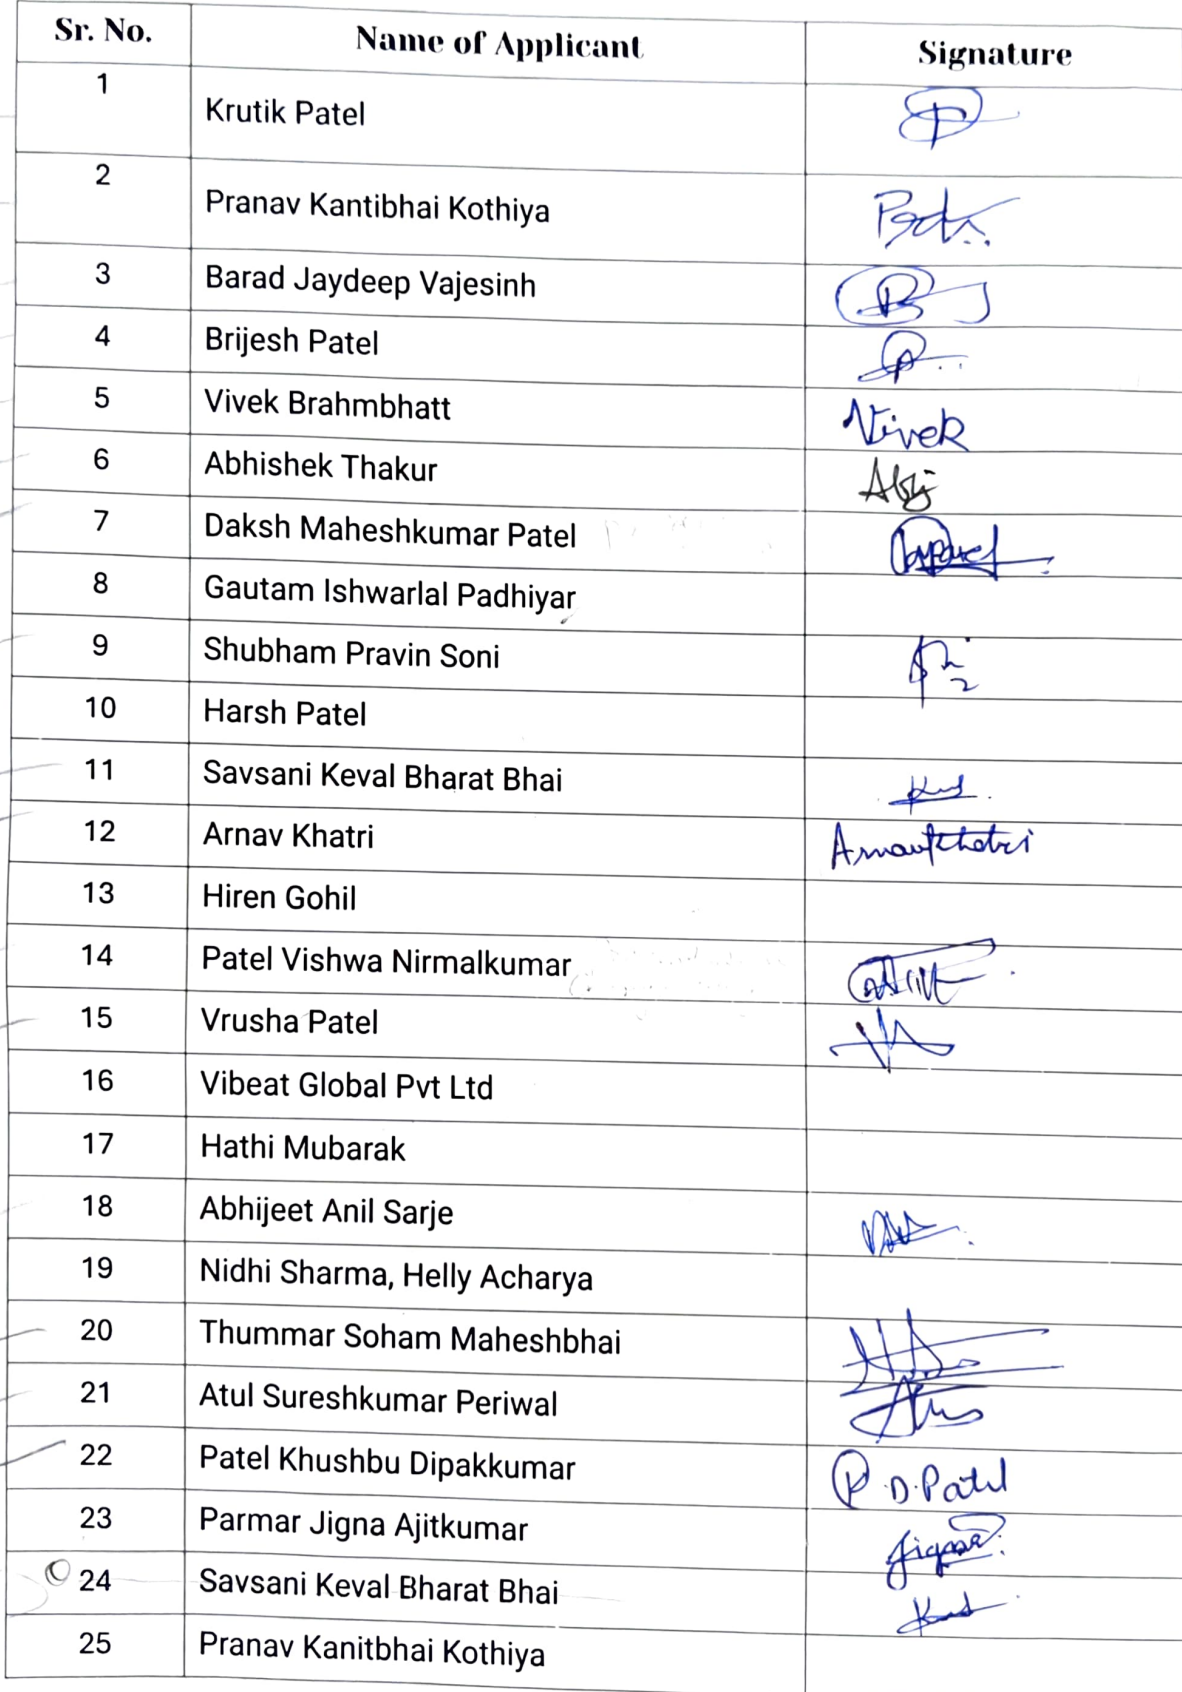 Sr. No. Name of Applicant Signature
1 Krutik Patel
2 Pranav Kantibhai Kothiya
3 Barad Jaydeep Vajesinh
4 Brijesh Patel
5 Vivek Brahmbhatt Vivek
6 Abhishek Thakur
7 Daksh Maheshkumar Patel
8 Gautam Ishwarlal Padhiyar
9 Shubham Pravin Soni
10 Harsh Patel
11 Savsani Keval Bharat Bhai
12 Arnav Khatri ArnavKhatri
13 Hiren Gohil
14 Patel Vishwa Nirmalkumar
15 Vrusha Patel
16 Vibeat Global Pvt Ltd
17 Hathi Mubarak
18 Abhijeet Anil Sarje
19 Nidhi Sharma, Helly Acharya
20 Thummar Soham Maheshbhai
21 Atul Sureshkumar Periwal
22 Patel Khushbu Dipakkumar K.D.Patel
23 Parmar Jigna Ajitkumar Jigna
24 Savsani Keval Bharat Bhai
25 Pranav Kanitbhai Kothiya